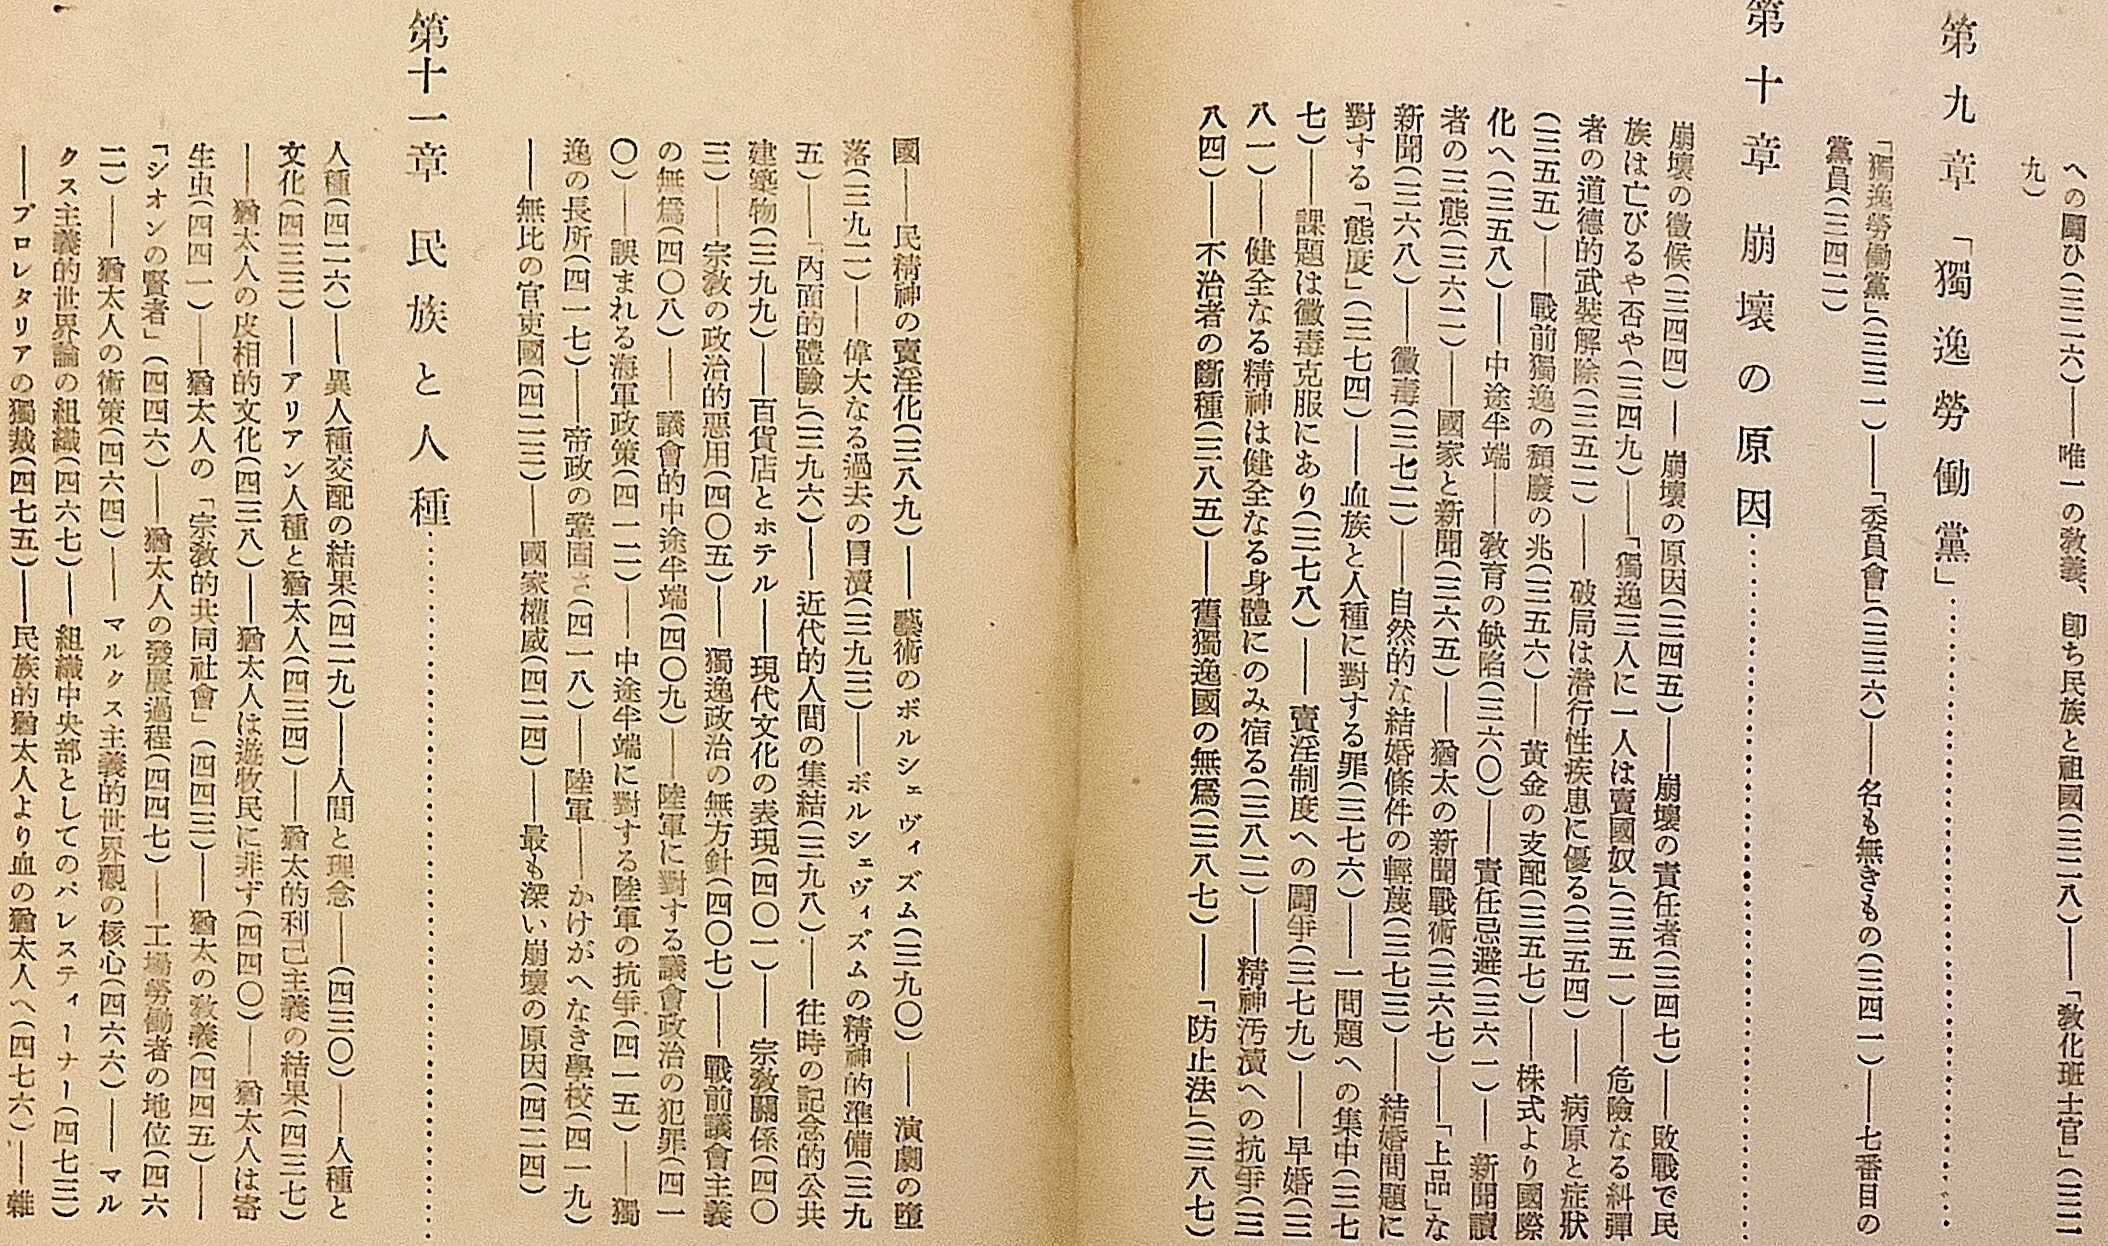 への鬪ひ(三二六)——唯一の敎義、卽ち民族と祖國(三二八)——「敎化班士官」(三二
九)
第九章 「獨逸勞働黨」
「獨逸勞働黨」(三三一)——「委員會」(三三六)——名も無きもの(三四一)——七番目の
黨員(三四二)
第十章 崩壞の原因
崩壞の徵候(三四四)——崩壞の原因(三四五)——崩壞の責任者(三四七)——敗戰で民
族は亡びるや否や(三四九)——「獨逸三人に一人は賣國奴」(三五一)——危險なる糾彈
者の道德的武裝解除(三五二)——破局は潛行性疾患に優る(三五四)——病原と症狀
(三五五)——戰前獨逸の頽廢の兆(三五六)——黃金の支配(三五七)——株式より國際
化へ(三五八)——中途半端——敎育の缺陷(三六〇)——責任忌避(三六一)——新聞讀
者の三態(三六二)——國家と新聞(三六五)——猶太の新聞戰術(三六七)——「上品」な
新聞(三六八)——黴毒(三七二)——自然的な結婚條件の輕蔑(三七三)——結婚問題に
對する「態度」(三七四)——血族と人種に對する罪(三七六)——一問題への集中(三七
七)——課題は黴毒克服にあり(三七八)——賣淫制度への鬪爭(三七九)——早婚(三
八一)——健全なる精神は健全なる身體にのみ宿る(三八二)——精神汚瀆への抗爭(三
八四)——不治者の斷種(三八五)——舊獨逸國の無爲(三八七)——「防止法」(三八七)
國——民精神の賣淫化(三八九)——藝術のボルシェヴィズム(三九〇)——演劇の墮
落(三九二)——偉大なる過去の冒瀆(三九三)——ボルシェヴィズムの精神的準備(三九
五)——「內面的體驗」(三九六)——近代的人間の集結(三九八)——往時の記念的公共
建築物(三九九)——百貨店とホテル——現代文化の表現(四〇一)——宗敎關係(四〇
三)——宗敎の政治的惡用(四〇五)——獨逸政治の無方針(四〇七)——戰前議會主義
の無爲(四〇八)——議會的中途半端(四〇九)——陸軍に對する議會政治の犯罪(四一
〇)——誤まれる海軍政策(四一二)——中途半端に對する陸軍の抗爭(四一五)——獨
逸の長所(四一七)——帝政の鞏固さ(四一八)——陸軍——かけがへなき學校(四一九)
——無比の官吏國(四二三)——國家權威(四二四)——最も深い崩壞の原因(四二四)
第十一章 民族と人種
人種(四二六)——異人種交配の結果(四二九)——人間と理念——(四三〇)——人種と
文化(四三三)——アリアン人種と猶太人(四三四)——猶太的利己主義の結果(四三七)
——猶太人の皮相的文化(四三八)——猶太人は遊牧民に非ず(四四〇)——猶太人は寄
生虫(四四一)——猶太人の「宗敎的共同社會」(四四三)——猶太の敎義(四四五)——
「シオンの賢者」(四四六)——猶太人の發展過程(四四七)——工場勞働者の地位(四六
二)——猶太人の術策(四六四)——マルクス主義的世界觀の核心(四六六)——マル
クス主義的世界論の組織(四六七)——組織中央部としてのパレスティーナー(四七三)
——プロレタリアの獨裁(四七五)——民族的猶太人より血の猶太人へ(四七六)——雜